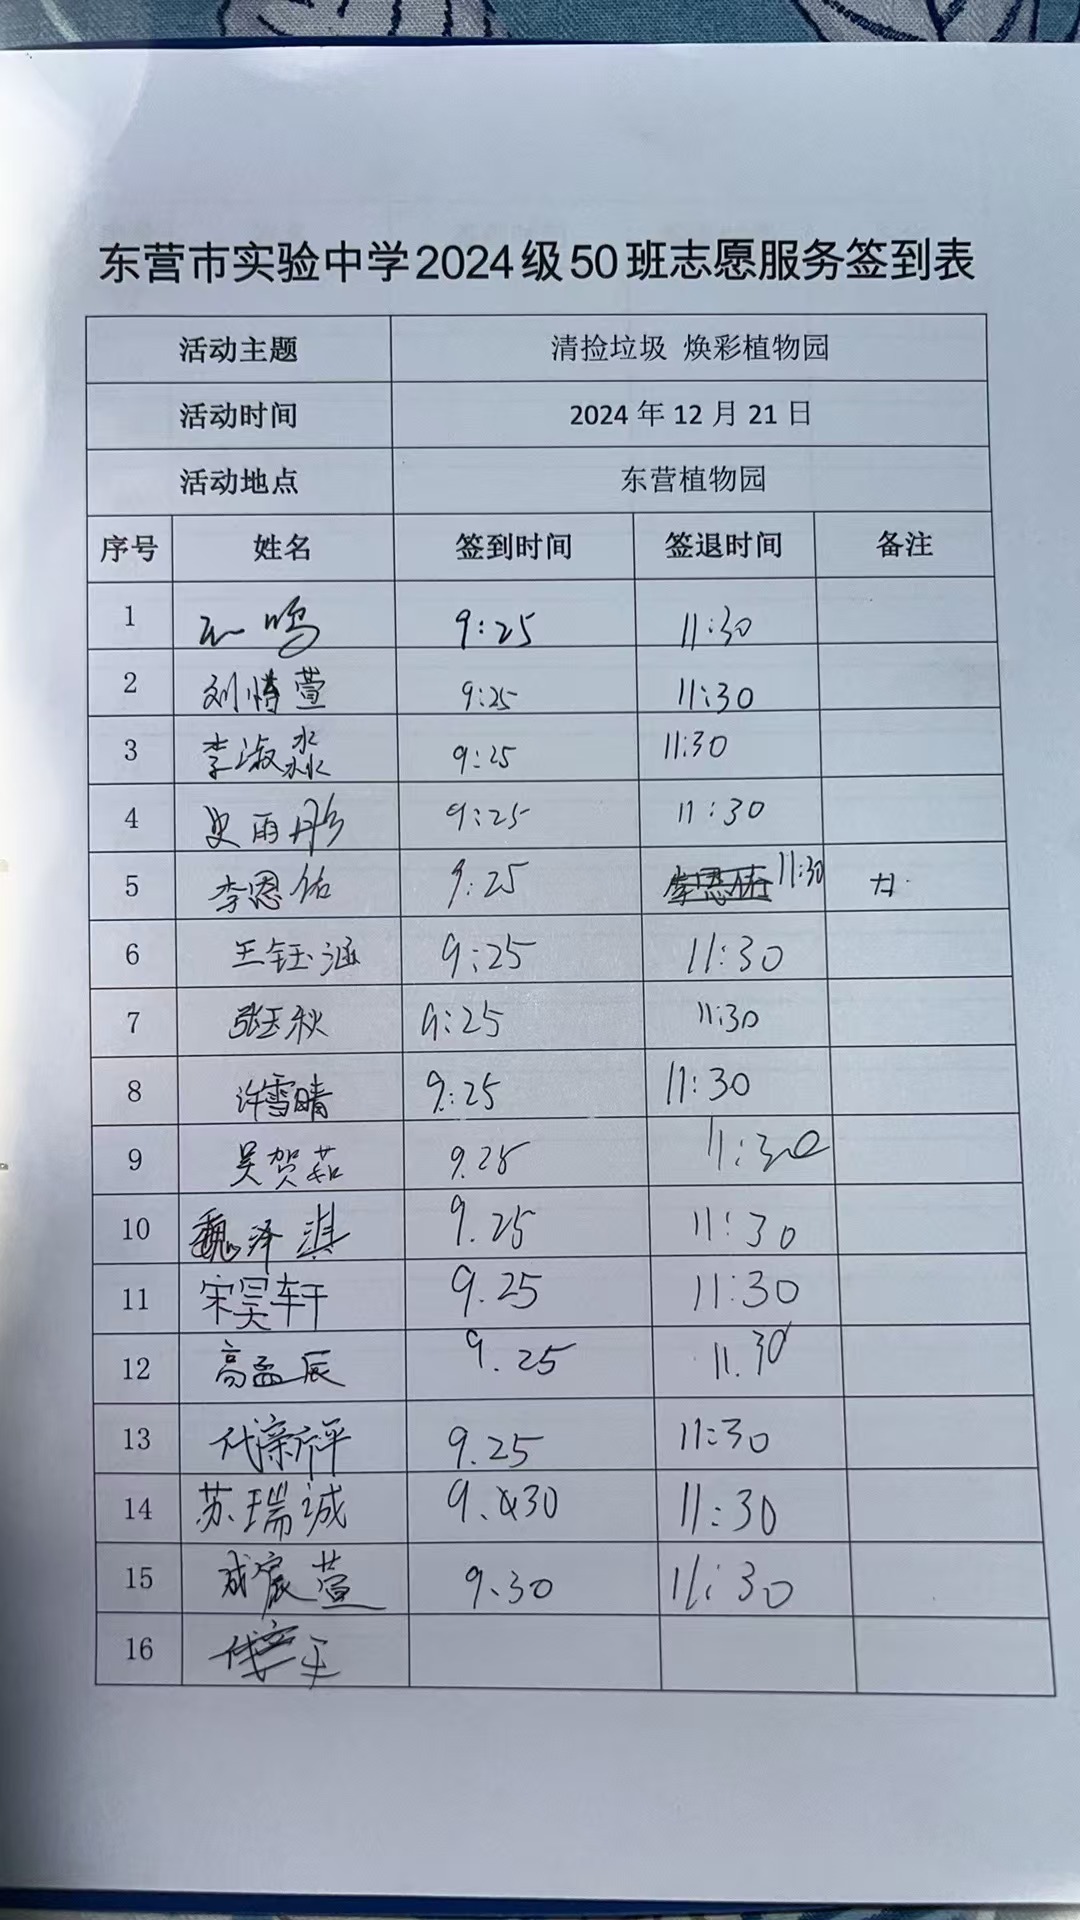 东营市实验中学2024级50班志愿服务签到表
活动主题 清捡垃圾 焕彩植物园
活动时间 2024 年 12 月 21 日
活动地点 东营植物园
序号 姓名 签到时间 签退时间 备注
1 鸣 9:25 11:30
2 刘 萱 9:25 11:30
3 李淑淼 9:25 11:30
4 史雨彤 9:25 11:30
5 李恩佑 9:25 李恩佑 11:30
6 王钰涵 9:25 11:30
7 张玉秋 9:25 11:30
8 许雪晴 9:25 11:30
9 吴贺茹 9.25 11:30
10 魏泽淇 9.25 11:30
11 宋昊轩 9.25 11:30
12 高孟辰 9.25 11.30
13 代 评 9.25 11:30
14 苏瑞诚 9.30 11:30
15 成宸萱 9.30 11:30
16